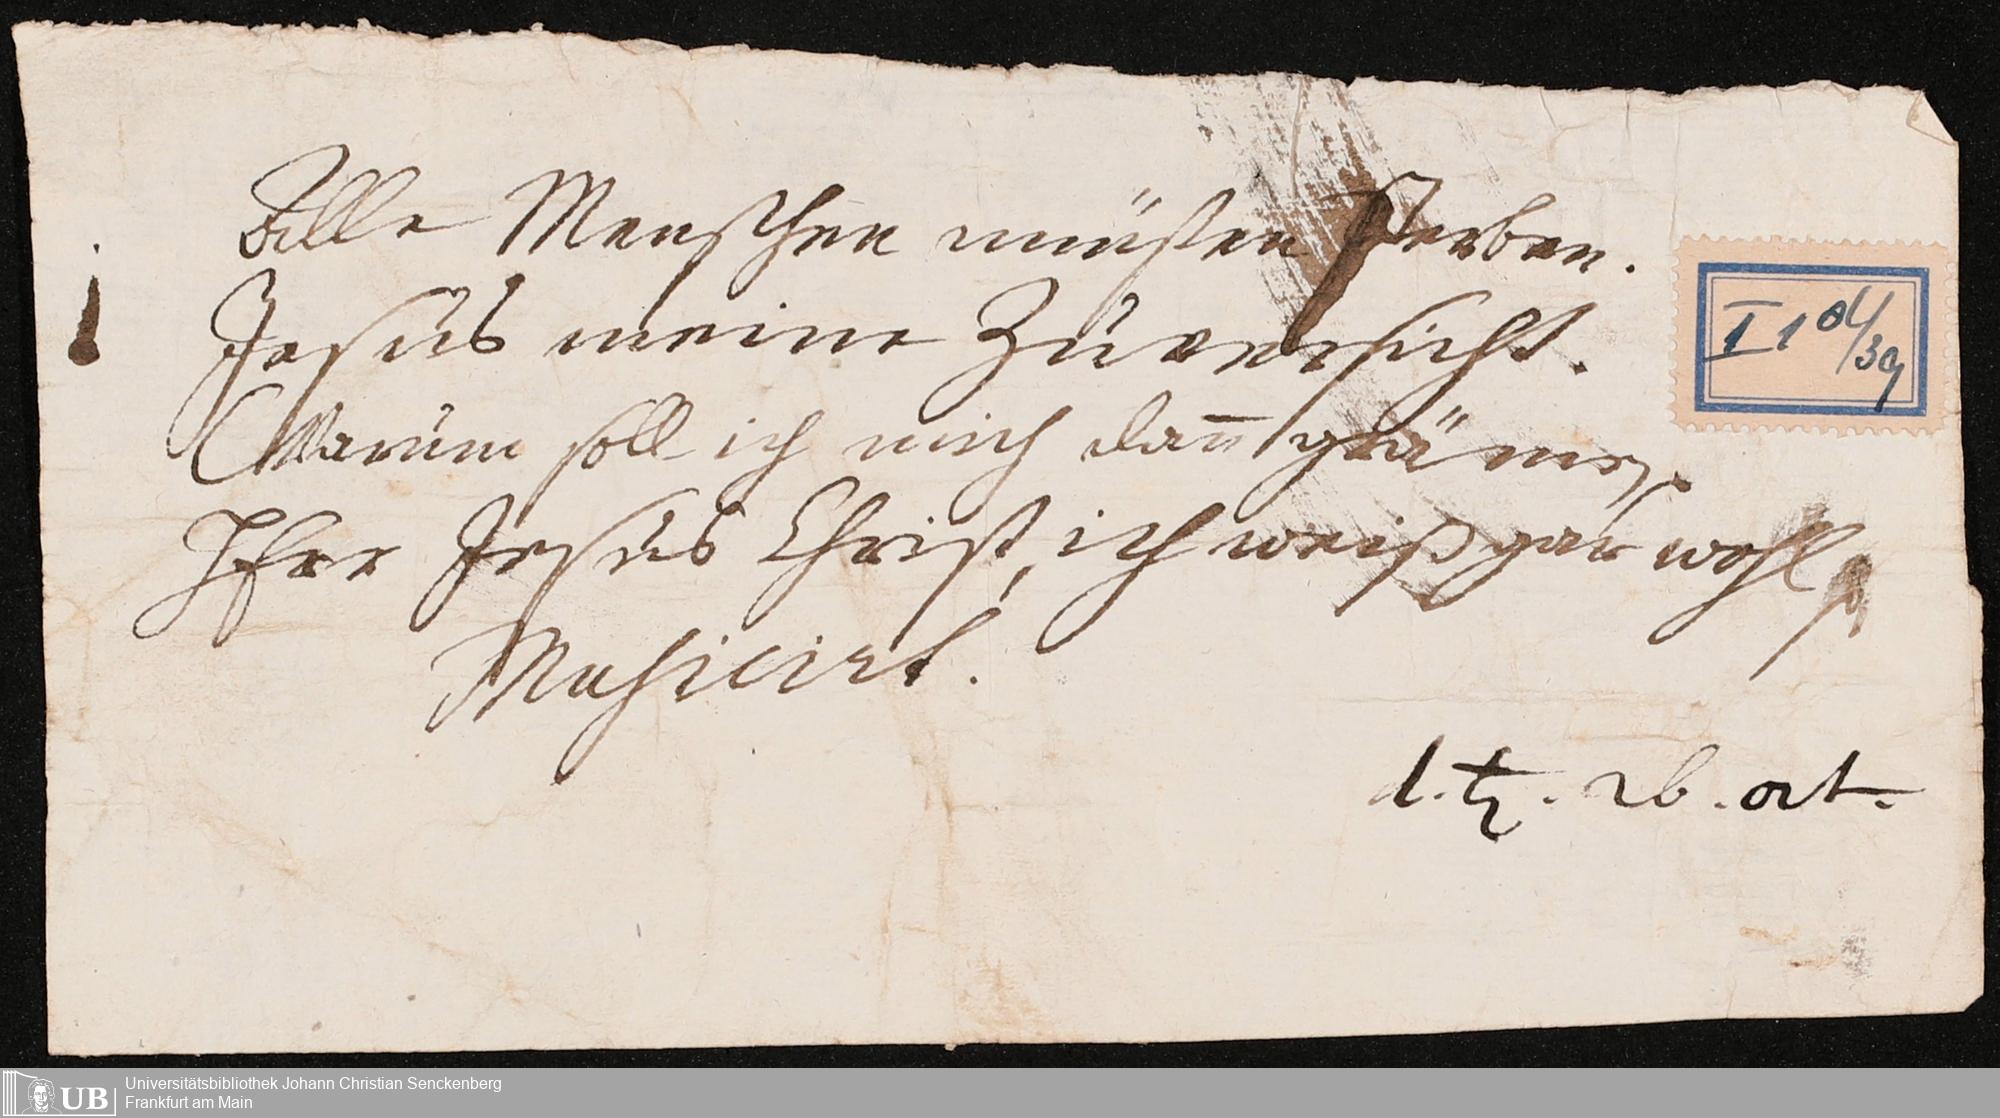 Alle Menschen müßen sterben.
Jesus meine Zuversicht.
Warum soll ich mich dañ gräme
Herr Jesus Christ, ich weiß gar wohl
Musicirt.
d. ♄. 26. oct.
I 1 04/39
Universitätsbibliothek Johann Christian Senckenberg
Frankfurt am Main
UB